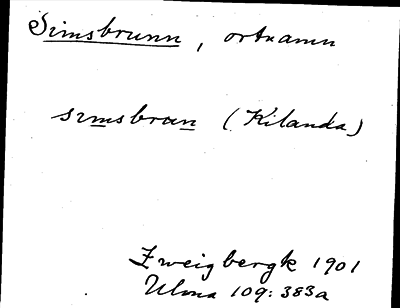 Simsbrunn, ortnamn
simsbrun (Kilanda)
Zweigbergk 1901
Ulma 109: 383a